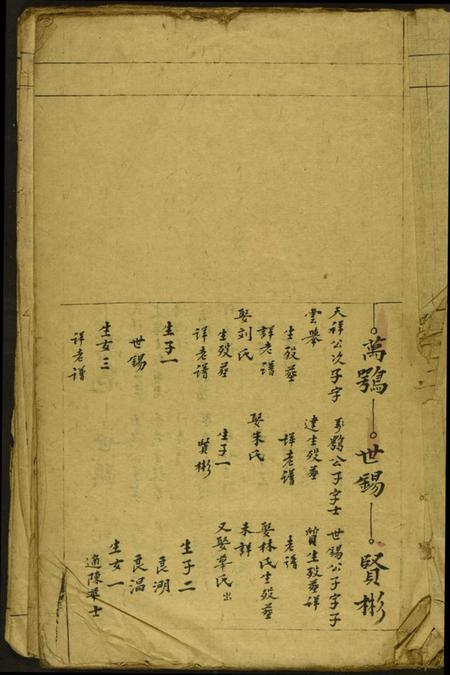 萬鶚 世錫 賢彬
天祥公次子字
雲舉
生殁葬
詳老譜
娶刘氏
生殁葬
详老譜
生子一
世錫
生女三
详老譜
萬鶚公子字士
達生殁葬
詳老譜
娶朱氏
生子一
賢彬
世錫公子字子
質生殁葬详
老譜
娶林氏生殁葬
未詳
又娶單氏出
生子二
良湖
良温
生女一
適陳
士